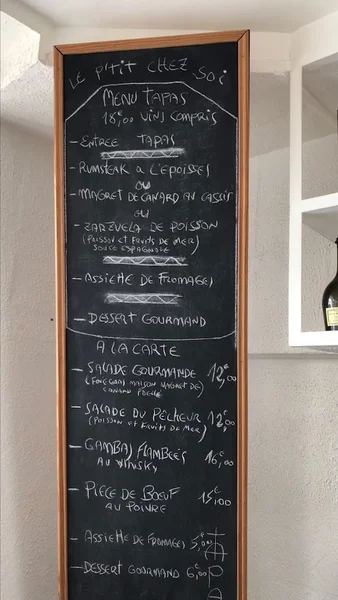 LE P'TIT CHEZ SOI
MENU TAPAS
18,00 VINS COMPRIS
- ENTREE TAPAS
- RUMSTEAK A L'EPOISSES
OU
- MAGRET DE CANARD AU CASSIS
OU
- ZARZUELA DE POISSON
(POISSON ET FRUITS DE MER)
SAUCE ESPAGNOLE
- ASSIETTE DE FROMAGES
- DESSERT GOURMAND
A LA CARTE
- SALADE GOURMANDE 12€,00
(FOIE GRAS MAISON MAGRET DE)
CANARD
- SALADE DU PÊCHEUR 12€,00
(POISSON ET FRUITS DE MER)
- GAMBAS FLAMBEES 16€,00
AU WHISKY
- PIECE DE BŒUF 15€,00
AU POIVRE
- ASSIETTE DE FROMAGES 5,00
- DESSERT GOURMAND 6,00